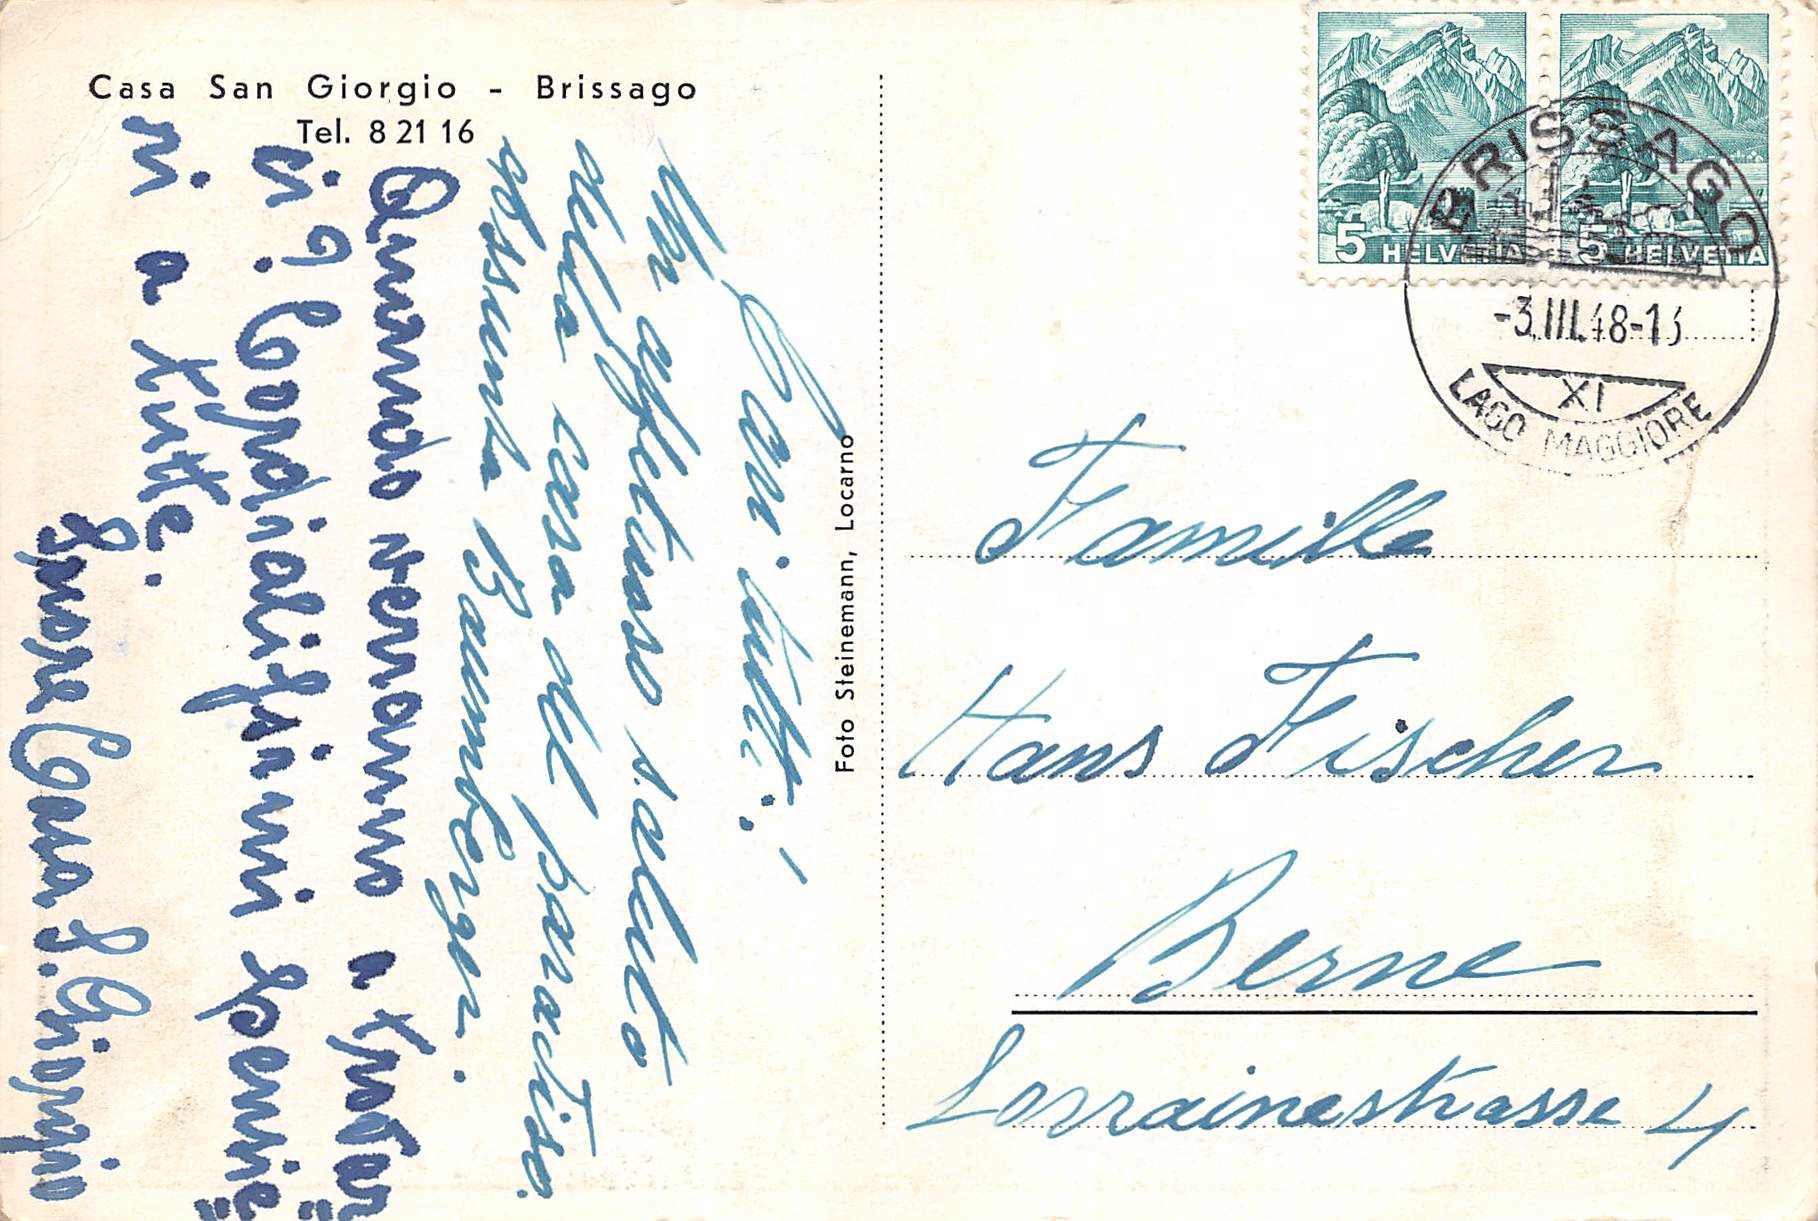 Casa San Giorgio - Brissago
Tel. 8 21 16
Cari tutti!
Un affettuoso saluto
della casa del paradiso.
Assunta Baumberger.
Quando verranno a trovar=
ci? Cordialissimi specie=
ri a tutte.
Suore Casa S. Giorgio
Foto Steinemann, Locarno
5 HELVETIA
5 HELVETIA
BRISSAGO
-3.III.48-13
XI
LAGO MAGGIORE
Famille
Hans Fischer
Berne
Lorrainestrasse 4